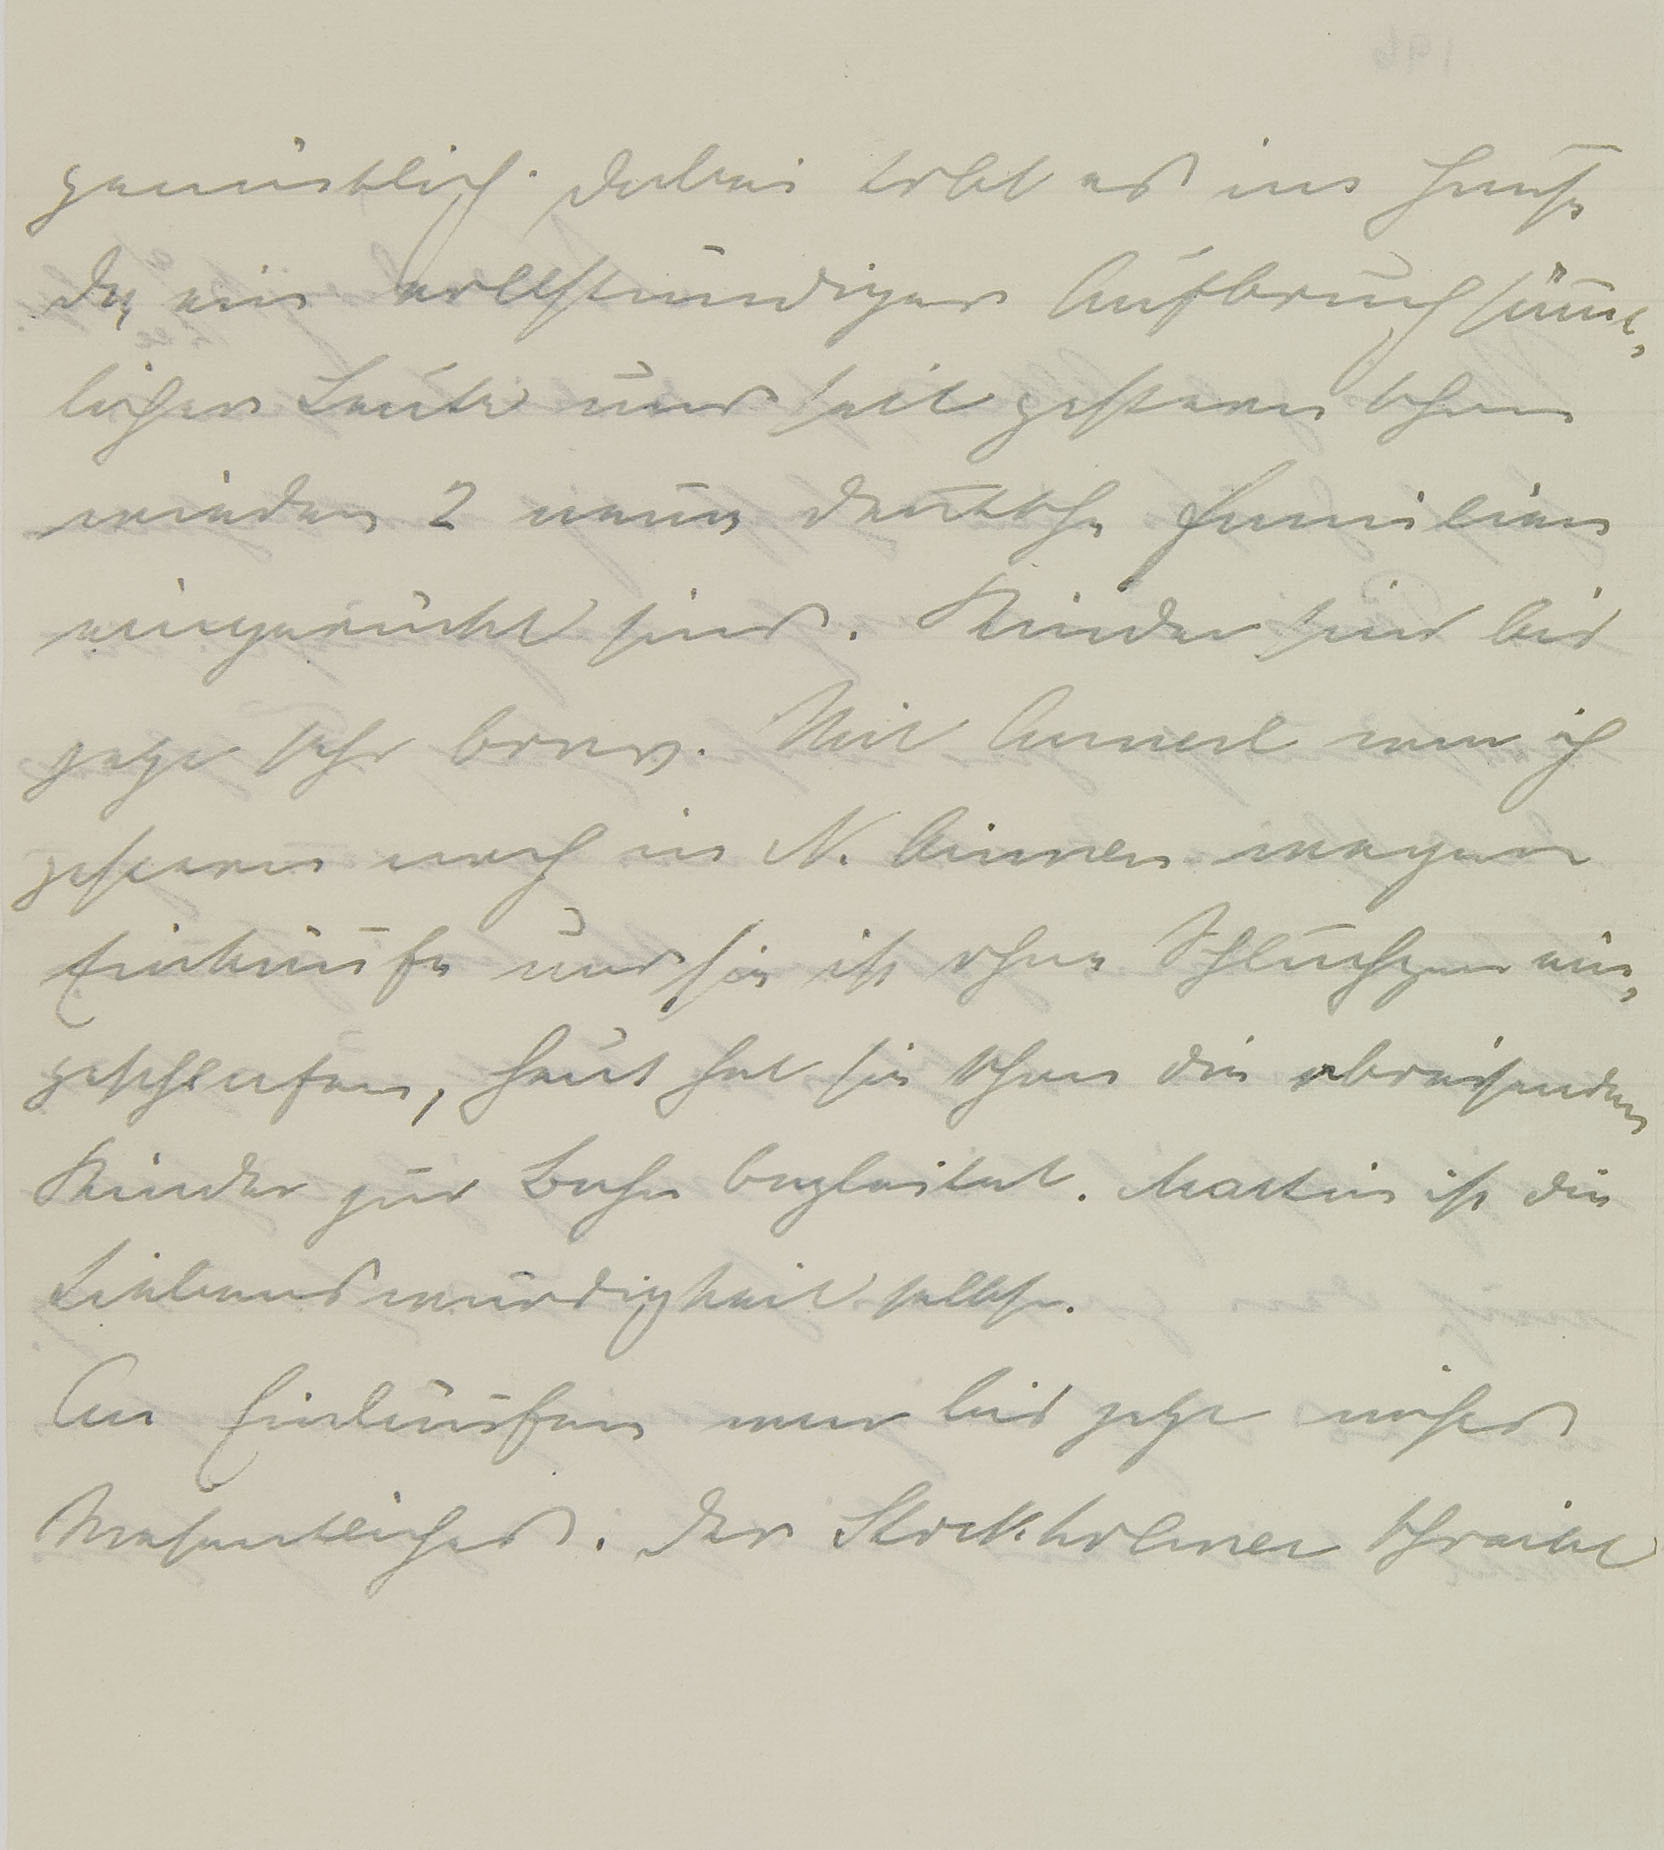 gemütlich. Dabei tobt es im Hause
da, ein vollständiger Aufbruch sämt-
licher Leute und seit gestern schon
wieder 2 neue deutsche Familien
eingerückt sind. Kinder sind bis
jetzt sehr brav. Mit Annerl war ich
gestern noch in N. binnen wegen
Einkäufe und sie ist ohne Schluchzen ein-
geschlafen, heut hat sie schon die abreisenden
Kinder zur Bahn begleitet. Martin ist die
Liebenswürdigkeit selbst.
An Einläufen war bis jetzt nichts
Wesentliches. Der Stockholmer schreibt